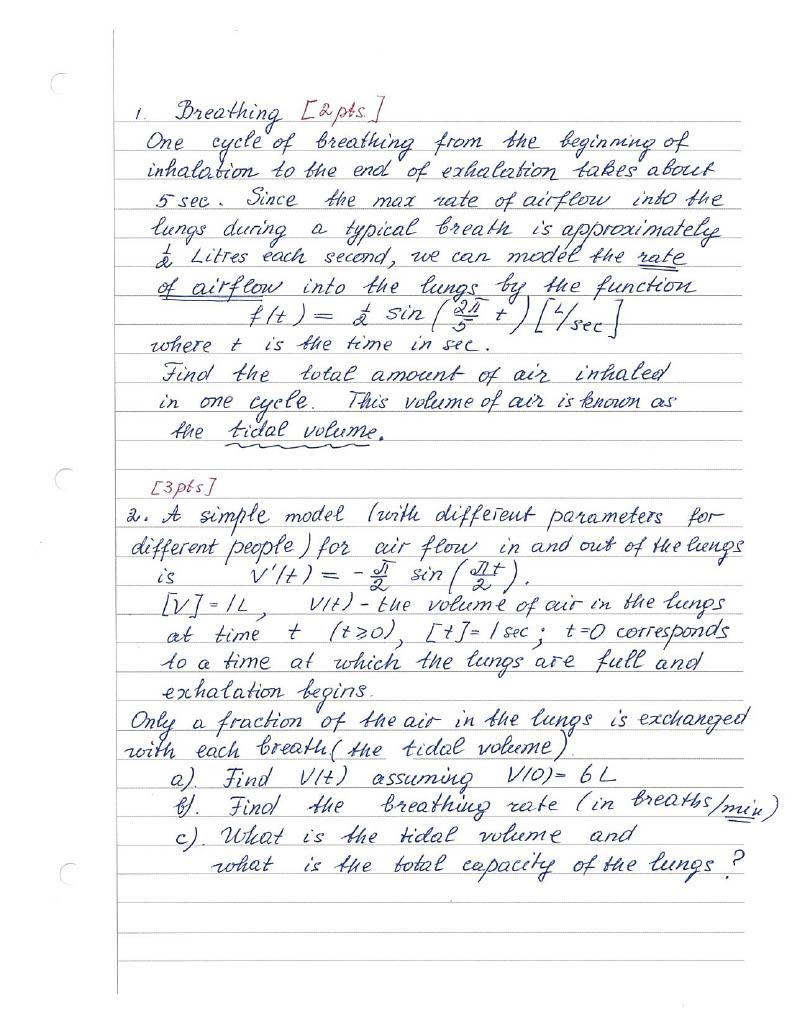 1. Breathing [2pts.]
One cycle of breathing from the beginning of
inhalation to the end of exhalation takes about
5 sec. Since the max rate of airflow into the
lungs during a typical breath is approximately
1/2 Litres each second, we can model the rate
of airflow into the lungs by the function
f(t) = 1/2 sin (2π/5 t) [L/sec]
where t is the time in sec.
Find the total amount of air inhaled
in one cycle. This volume of air is known as
the tidal volume.
[3pts]
2. A simple model (with different parameters for
different people) for air flow in and out of the lungs
is V'(t) = - π/2 sin (πt/2).
[V] = 1L, V(t) - the volume of air in the lungs
at time t (t≥0), [t] = 1 sec; t=0 corresponds
to a time at which the lungs are full and
exhalation begins.
Only a fraction of the air in the lungs is exchanged
with each breath (the tidal volume).
a). Find V(t) assuming V(0) = 6L
b). Find the breathing rate (in breaths/min)
c). What is the tidal volume and
what is the total capacity of the lungs?